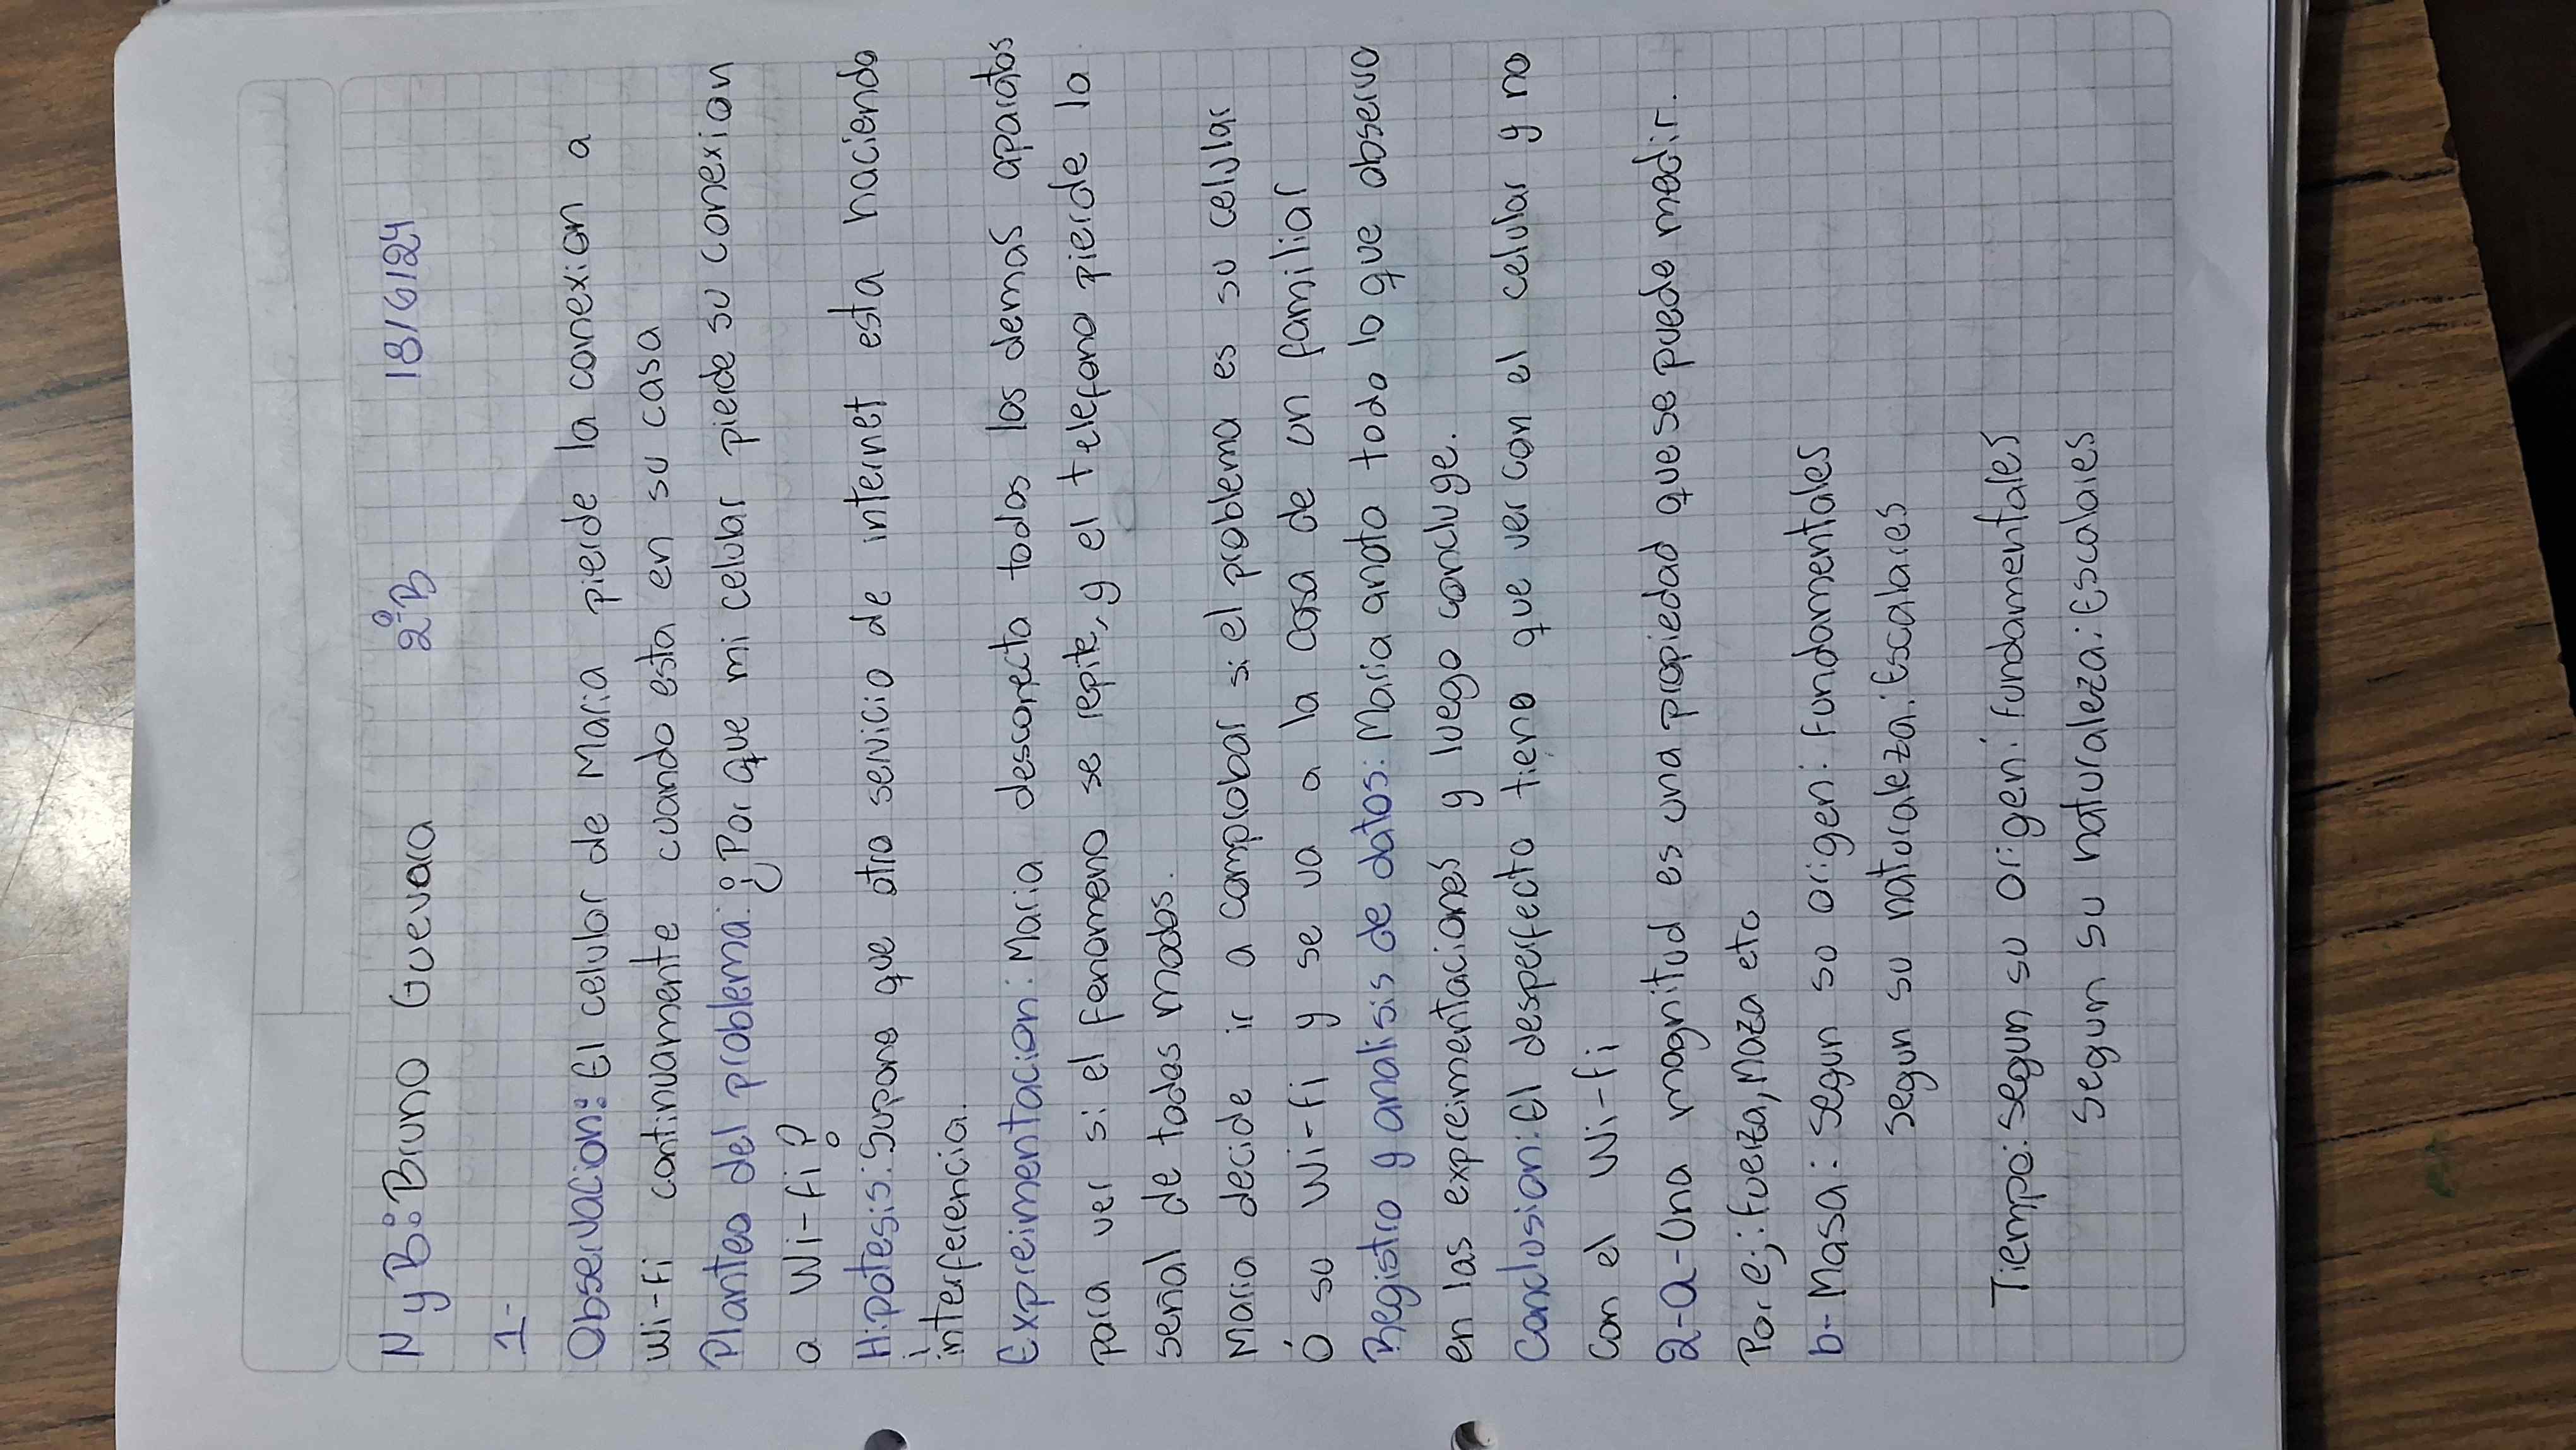 N y B: Bruno Guevara 2°B 18/6/24
1-
Observacion: El celular de Maria pierde la conexion a
Wi-Fi continuamente cuando esta en su casa
Planteo del problema: ¿Por que mi celular piede su conexion
a Wi-fi?
Hipotesis: Supone que otro servicio de internet esta haciendo
interferencia.
Expreimentacion: Maria desconecta todos los demas aparatos
para ver si el fenomeno se repite, y el telefono pierde la
señal de todas modos.
Maria decide ir a comprobar si el problema es su celular
Ó su Wi-fi y se va a la casa de un familiar
Registro y analisis de datos: Maria anota todo lo que observa
en las expreimentaciones y luego concluge.
Conclusion: El desperfecto tiene que ver con el celular y no
con el Wi-fi
2-a-Una magnitud es una propiedad que se puede medir.
Por ej: fuerza, Maza etc
b- Masa: Segun su origen: Fundamentales
segun su naturaleza: Escalares
Tiempo: Segun su origen: Fundamentales
segun su naturaleza: Escalares